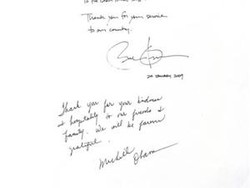 Thank you for your service
to our country.
20 January 2009
Thank you for your kindness
& hospitality to our friends &
family. We will be forever
grateful.
Michelle Obama